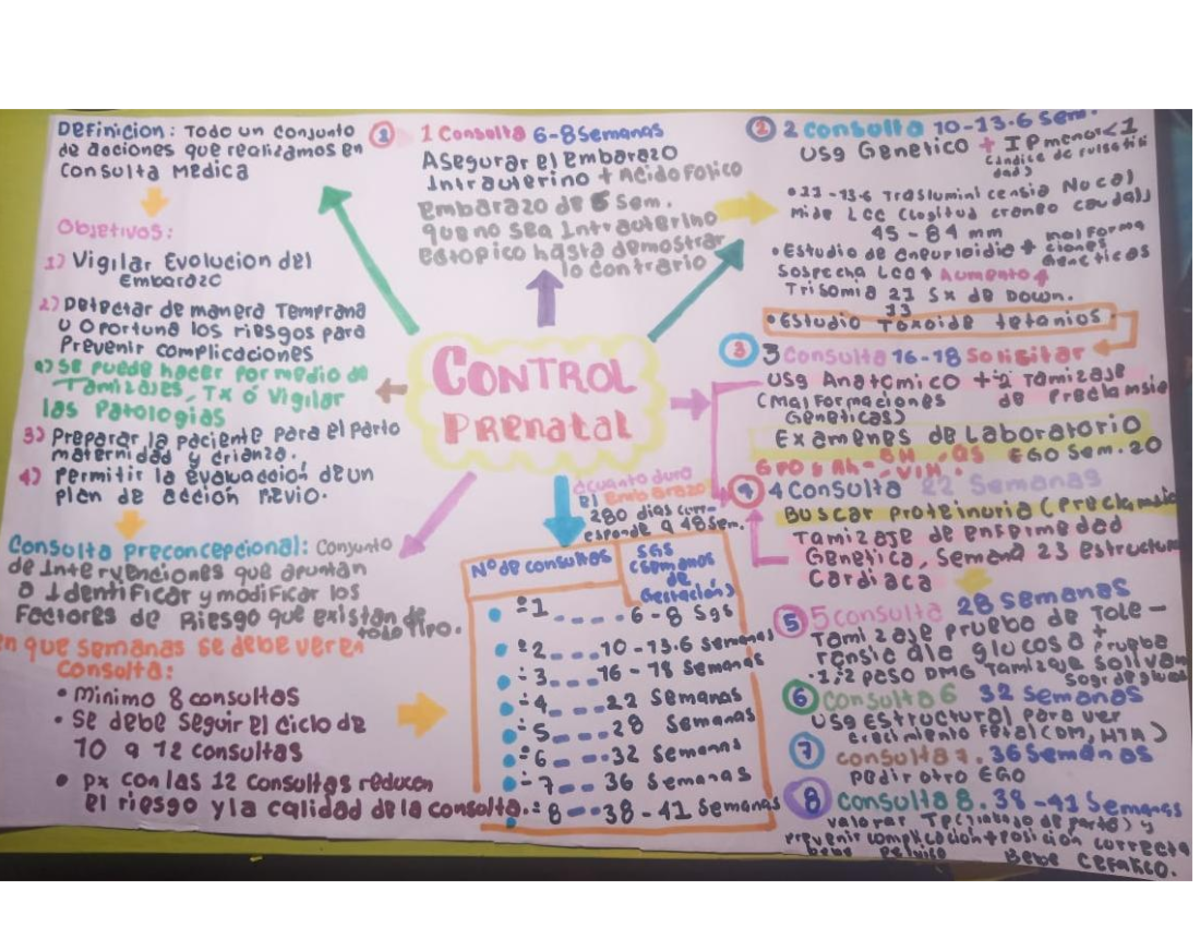 Definicion: Todo un conjunto
de acciones que realizamos en
Consulta Medica
Objetivos:
1) Vigilar Evolucion del
Embarazo
2) Detectar de manera Temprana
u Oportuna los riesgos para
Prevenir complicaciones
a) se puede hacer por medio de
Tamizajes, Tx ó Vigilar
las Patologias
3) Preparar la paciente para el parto
maternidad y crianza.
4) Permitir la evaluación de un
plan de acción previo.
Consulta preconcepcional: Conjunto
de Intervenciones que apuntan
a Identificar y modificar los
Factores de Riesgo que existan de
todo tipo.
en que semanas se debe ver en
Consulta:
• Minimo 8 consultas
• Se debe seguir el ciclo de
10 a 12 consultas
• px con las 12 consultas reducen
el riesgo y la calidad de la consulta.
CONTROL
PRENATAL
1 1 Consulta 6-8 Semanas
Asegurar el Embarazo
Intrauterino + Acido Folico
Embarazo de 5 Sem.
que no sea Intrauterino
Ectopico hasta demostrar
lo contrario
¿cuanto dura
el Embarazo?
280 dias corr-
esponde a 48 sem.
Nº de consultas
SGS
(Semanas
de
Gestación)
1 6-8 Sgs
2 10-13.6 Semanas
3 16-18 Semanas
4 22 Semanas
5 28 Semanas
6 32 Semanas
7 36 Semanas
8 38-41 Semanas
2 2 consulta 10-13.6 sem.
USG Genetico + IP menor <1
(indice de pulsatili
dad)
mide LCC (logitud craneo caudal)
45-84 mm
• Estudio de + mal forma
ciones
geneticas
Sospecha Aumento
Trisomia 21 Sx de Down.
13
• Estudio Toxoide tetanios.
3 3 Consulta 16-18 Solisitar
USG Anatomico + 2 Tamizaje
(Malformaciones de Preclamsia
Geneticas)
Examenes de Laboratorio
GPO & Rh - BH, QS EGO Sem. 20
VIH.
4 4 Consulta 22 Semanas
Buscar Proteinuria (Preclamsia
Tamizaje de enfermedad
Genetica, Semana 23 estructura
Cardiaca
5 5 consulta 28 semanas
Tamizaje prueba de Tole-
glucosa + Prueba
DMG Tamizaje
6 Consulta 6 32 Semanas
USG Estructural para ver
crecimiento Fetal (DM, HTA)
7 consulta 7. 36 Semanas
pedir otro EGO
8 consulta 8. 38-41 Semanas
valorar TP (trabajo de parto) y
prevenir complicación + posición correcta
bebe pelvico Bebe Cefalico.